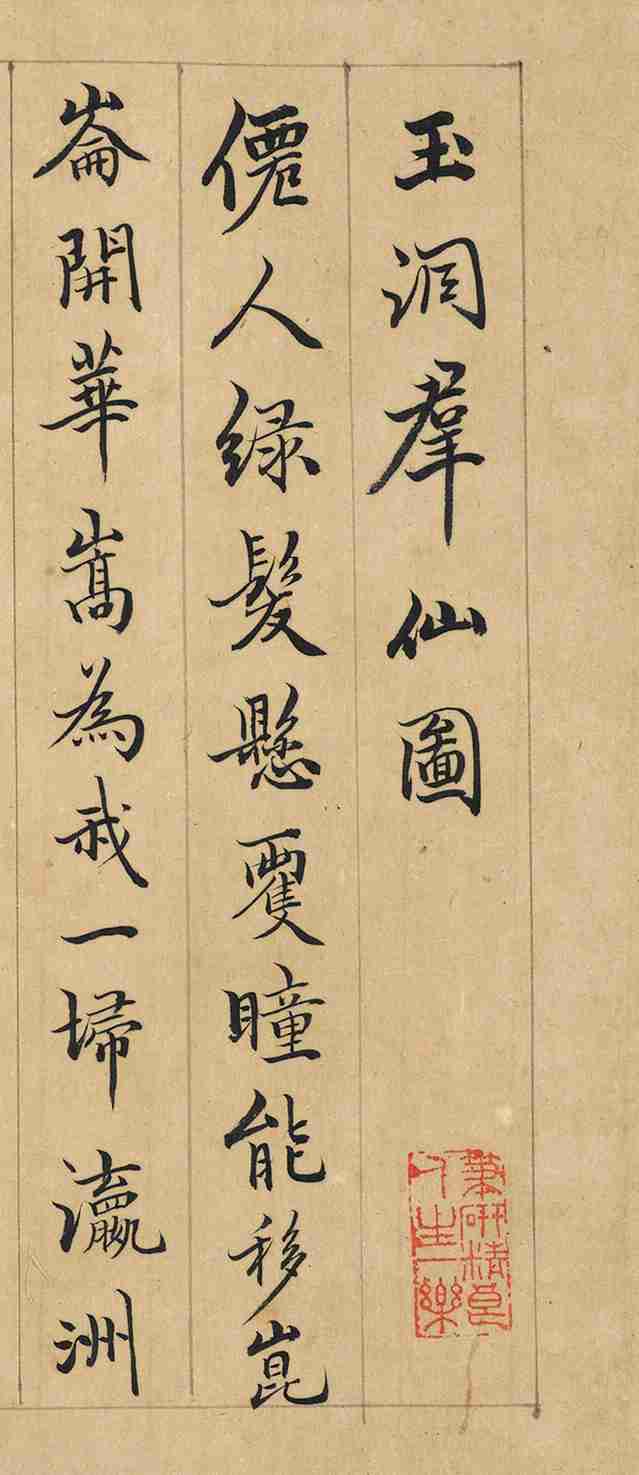 玉洞羣仙圖
筆研精良
人生一樂
僊人緑髮懸雙瞳能移崑
崙開華嵩為我一埽瀛洲